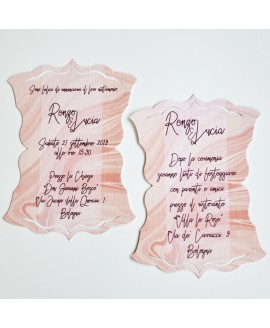 Sono felici di annunciare il loro matrimonio
Renzo
&
Lucia
Sabato 21 settembre 2019
alle ore 15:30
Presso la Chiesa
"Don Giovanni Bosco"
Via Jacopo della Quercia, 1
Bologna
Renzo
&
Lucia
Dopo la cerimonia
saranno lieti di festeggiare
con parenti e amici
presso il ristorante
"Villa le Rose"
Via de' Carracci, 9
Bologna